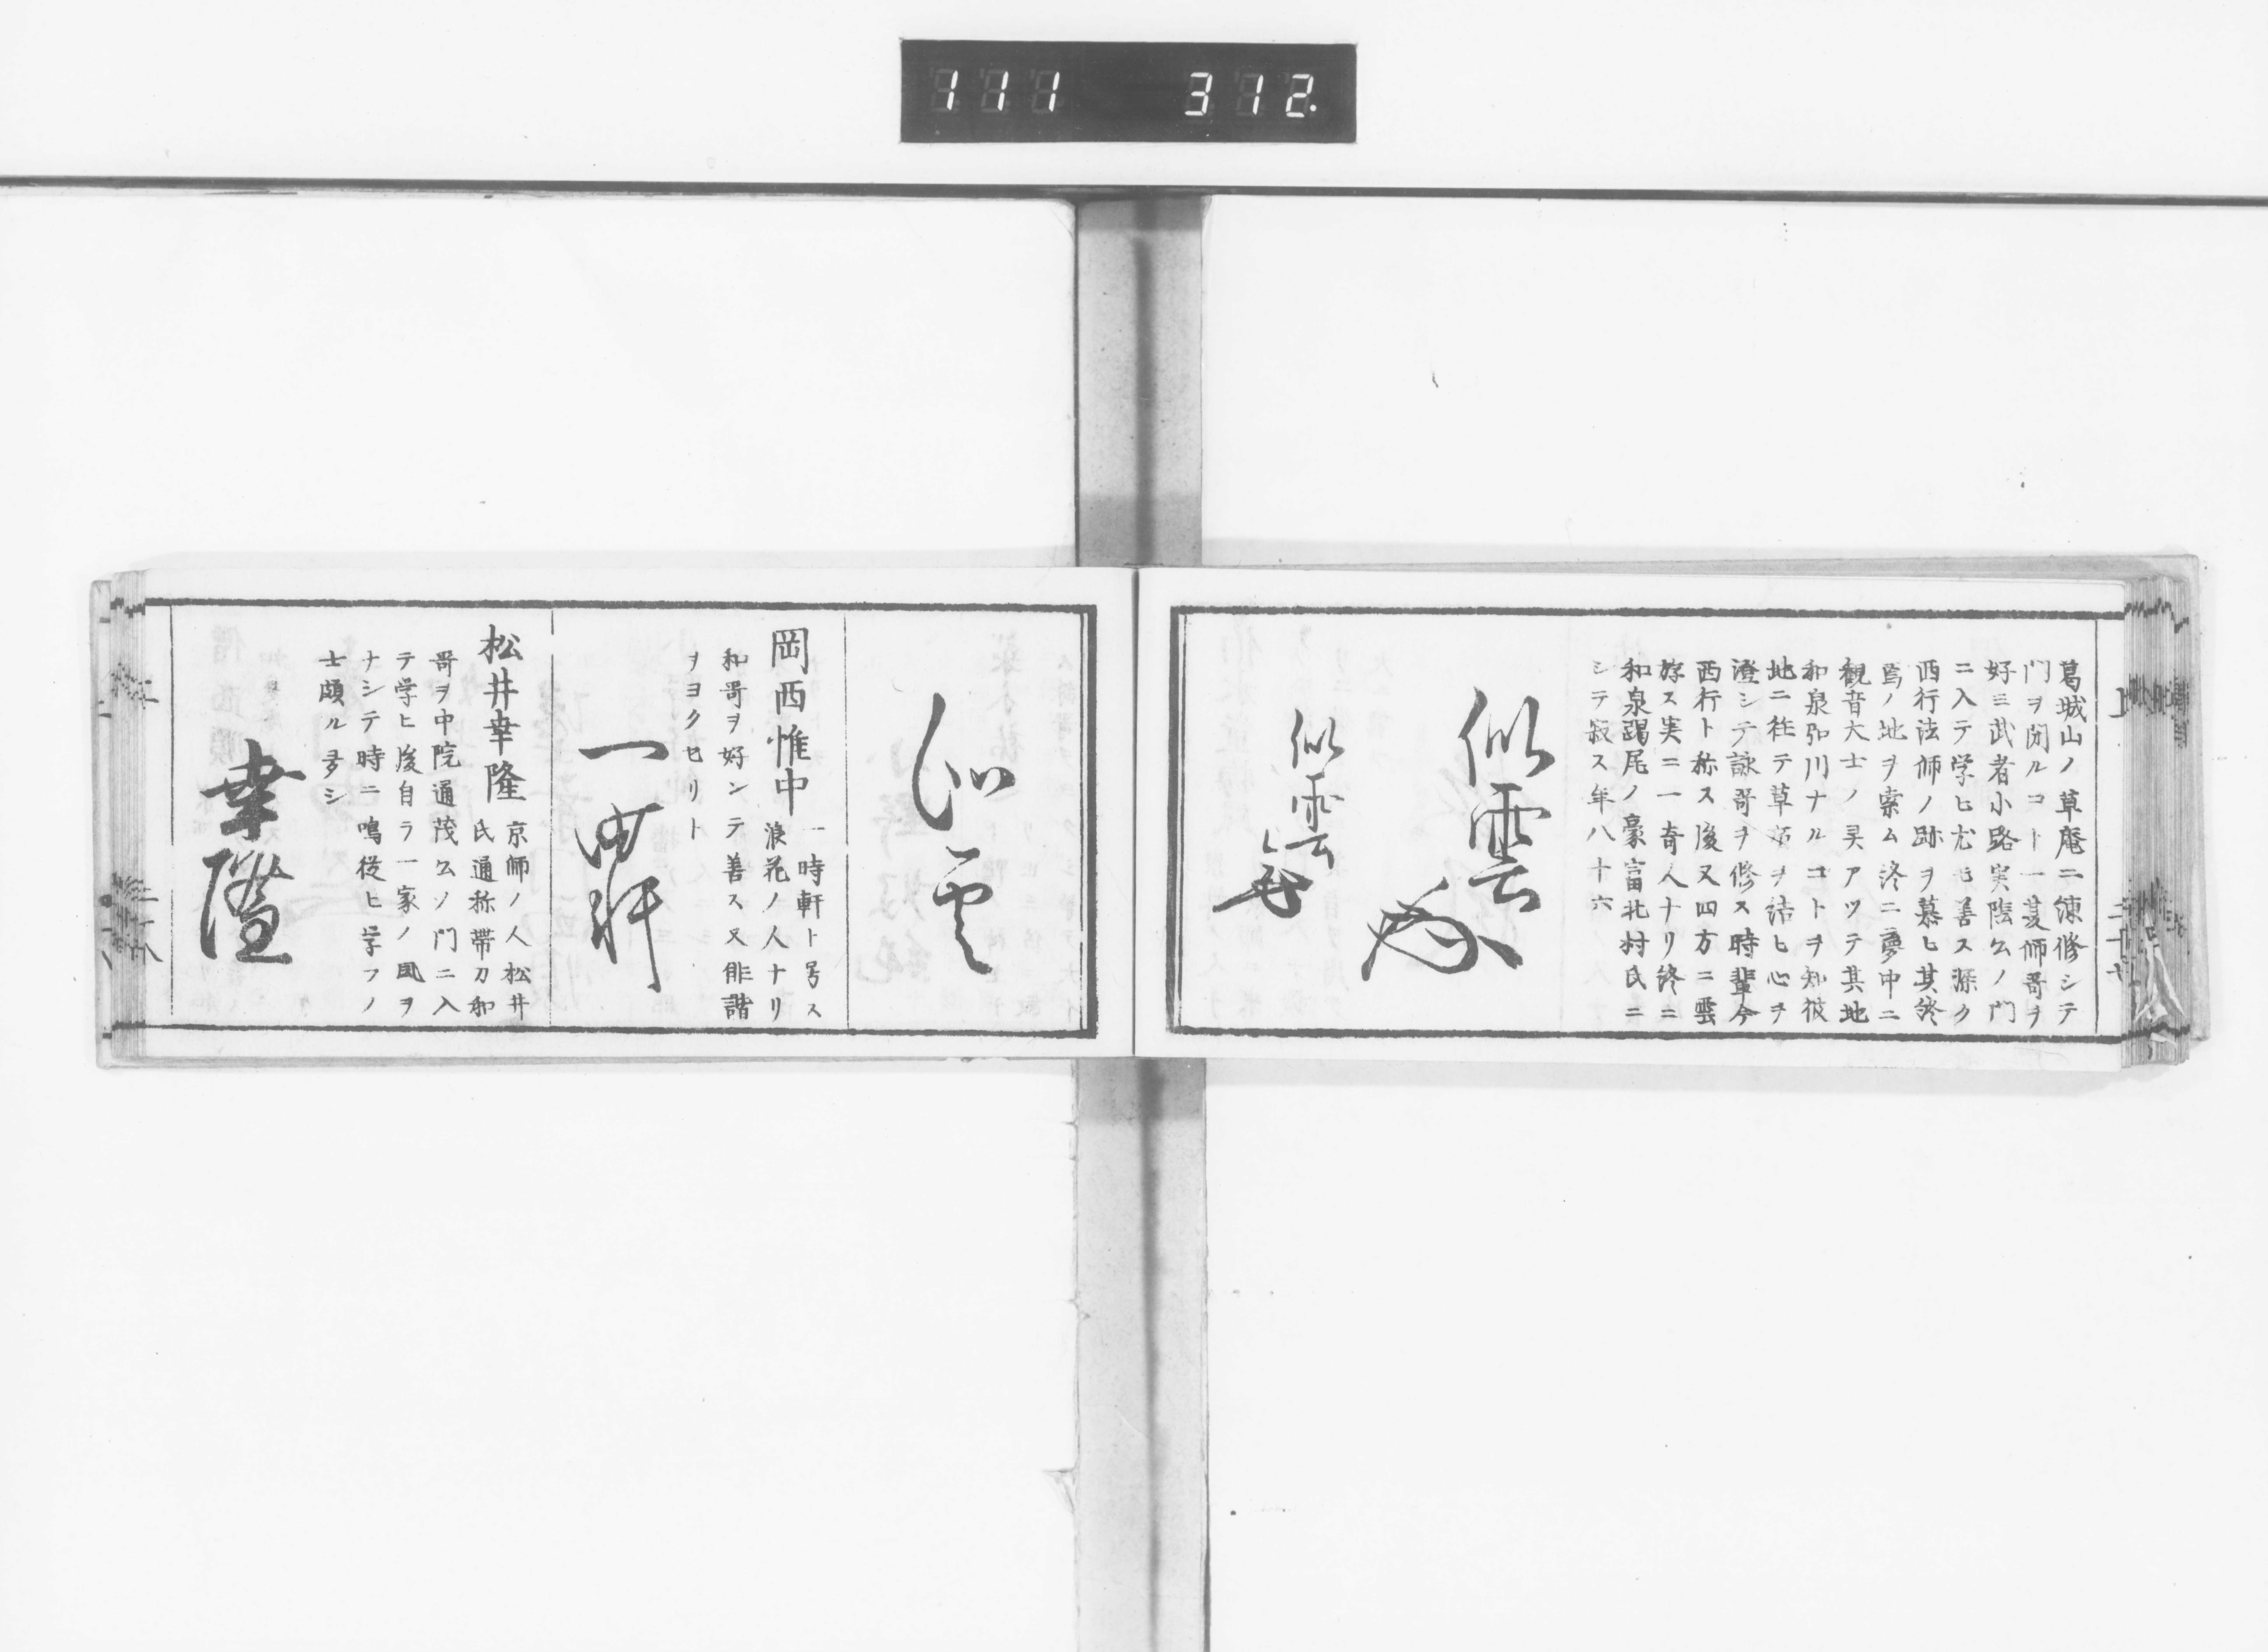 111 312.
葛城山ノ草庵ニ練修シテ
門ヲ閉ルコト一夏師哥ヲ
好ミ武者小路実陰公ノ門
ニ入テ学ヒ尤モ善ス深ク
西行法師ノ跡ヲ慕ヒ其終
焉ノ地ヲ索ム終ニ夢中ニ
観音大士ノ灵アツテ其地
和泉弘川ナルコトヲ知彼
地ニ往テ草庵ヲ結ヒ心ヲ
澄シテ詠哥ヲ修ス時輩今
西行ト称ス後又四方ニ雲
遊ス実ニ一奇人ナリ終ニ
和泉踞尾ノ豪富北村氏ニ
シテ寂ス年八十六
似雲
似雲
似雲
岡西惟中
一時軒ト号ス
浪花ノ人ナリ
和哥ヲ好ンテ善ス又俳諧
ヲヨクセリト
一時軒
松井幸隆
京師ノ人松井
氏通称帯刀和
哥ヲ中院通茂公ノ門ニ入
テ学ヒ後自ラ一家ノ風ヲ
ナシテ時ニ鳴従ヒ学フノ
士頗ル多シ
幸隆